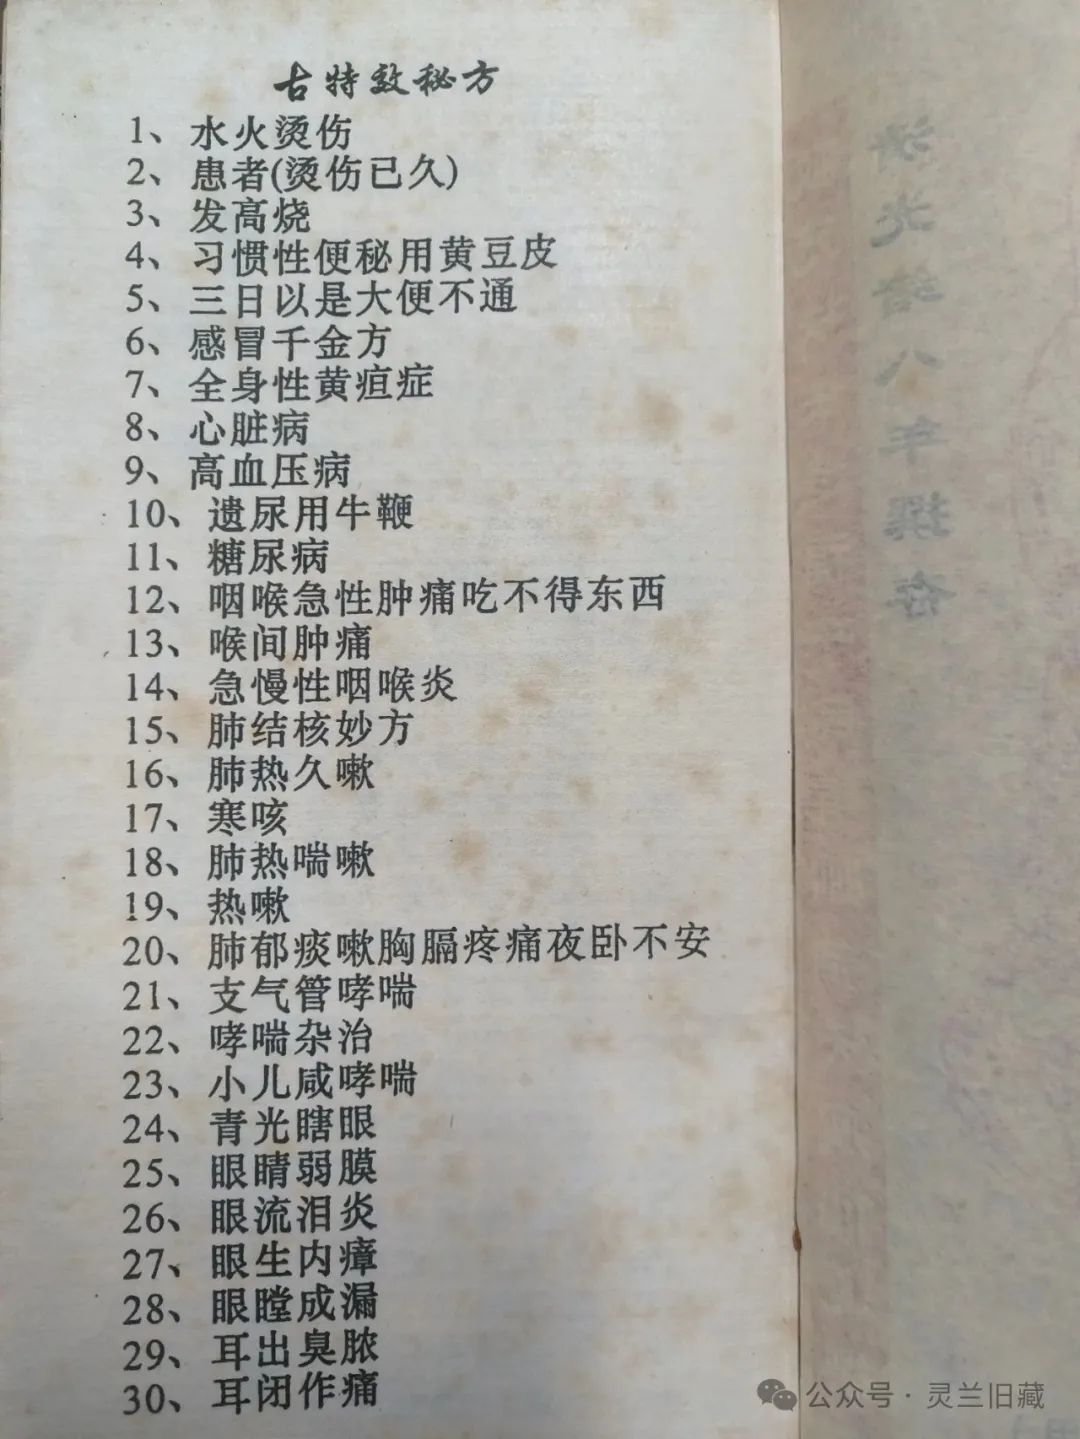 古特效秘方
1、水火烫伤
2、患者(烫伤已久)
3、发高烧
4、习惯性便秘用黄豆皮
5、三日以是大便不通
6、感冒千金方
7、全身性黄疸症
8、心脏病
9、高血压病
10、遗尿用牛鞭
11、糖尿病
12、咽喉急性肿痛吃不得东西
13、喉间肿痛
14、急慢性咽喉炎
15、肺结核妙方
16、肺热久嗽
17、寒咳
18、肺热喘嗽
19、热嗽
20、肺郁痰嗽胸膈疼痛夜卧不安
21、支气管哮喘
22、哮喘杂治
23、小儿咸哮喘
24、青光瞎眼
25、眼睛弱膜
26、眼流泪炎
27、眼生内瘴
28、眼瞠成漏
29、耳出臭脓
30、耳闭作痛
公众号·灵兰旧藏